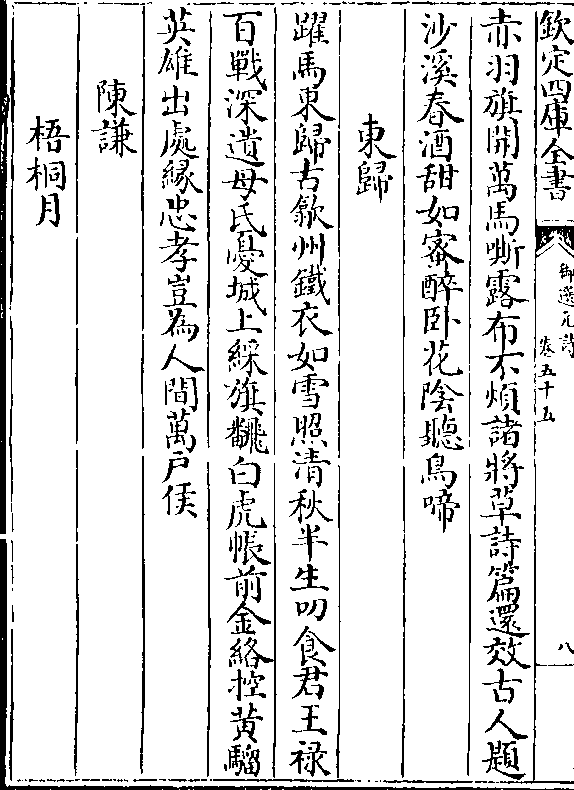 欽定四庫全書
御選元詩
卷五十五
八
赤羽旗開萬馬嘶露布不煩諸將草詩篇還效古人題
沙溪春酒甜如蜜醉卧花陰聽鳥啼
東歸
躍馬東歸古歙州鐵衣如雪照清秋半生叨食君王禄
百戰深遺母氏憂城上綵旗飜白虎帳前金絡控黄騮
英雄出處緣忠孝豈為人間萬戸侯
陳謙
梧桐月